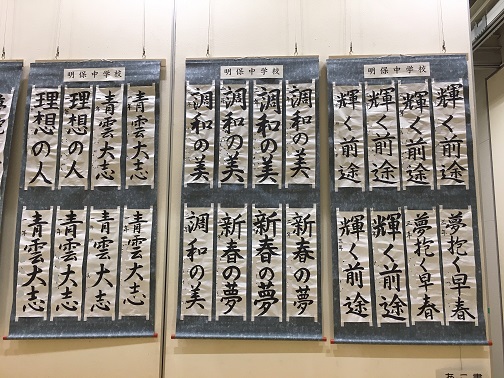 明保中学校
理想の人
理想の人
青雲大志
青雲大志
青雲大志
青雲大志
青雲大志
青雲大志
明保中学校
調和の美
調和の美
調和の美
調和の美
調和の美
新春の夢
新春の夢
新春の夢
明保中学校
輝く前途
輝く前途
輝く前途
輝く前途
輝く前途
輝く前途
夢抱く早春
夢抱く早春